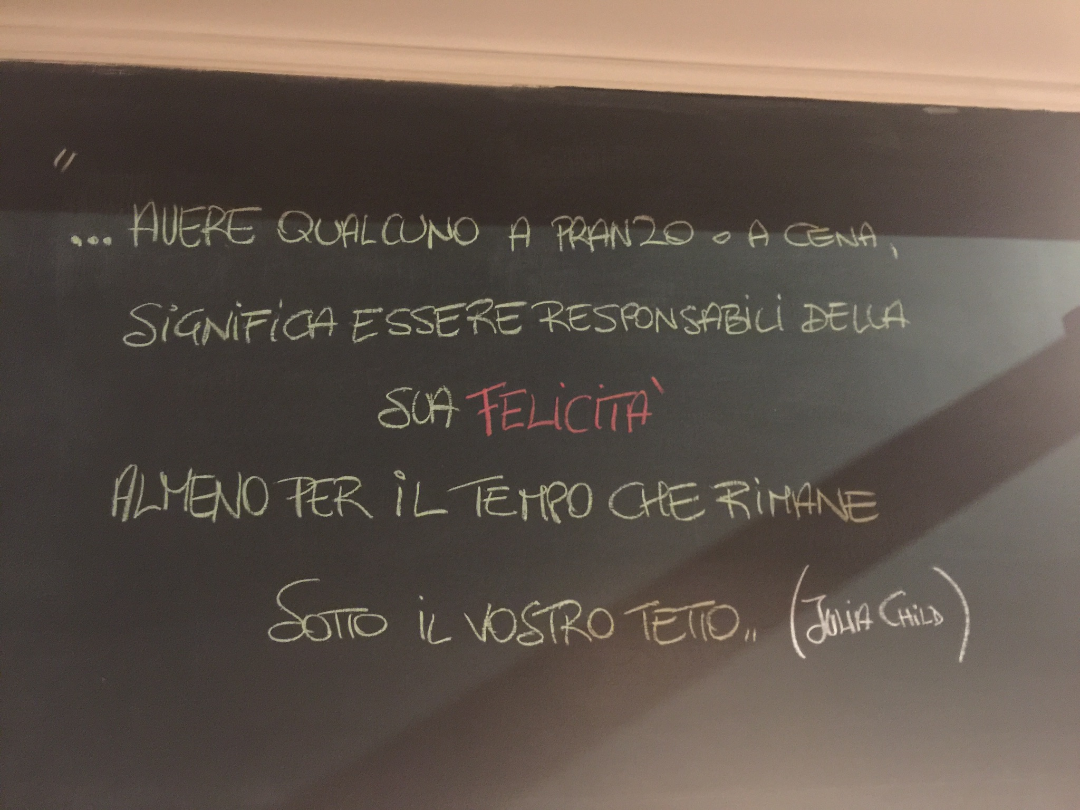 "
... AVERE QUALCUNO A PRANZO O A CENA,
SIGNIFICA ESSERE RESPONSABILI DELLA
SUA FELICITA'
ALMENO PER IL TEMPO CHE RIMANE
SOTTO IL VOSTRO TETTO" (JULIA CHILD)